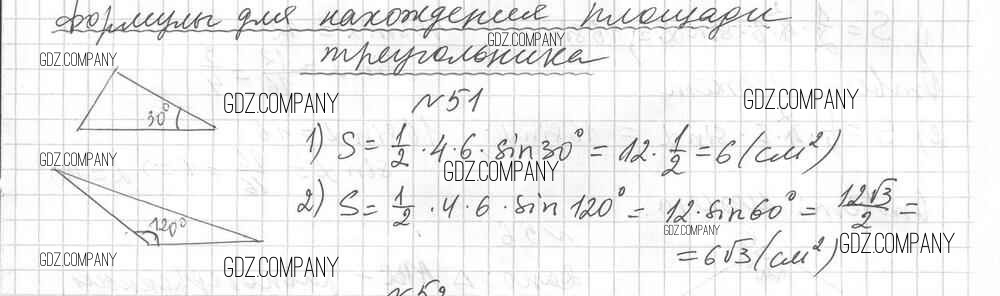 Формулы для нахождения площади
GDZ.COMPANY
треугольника
GDZ.COMPANY
GDZ.COMPANY
№51
GDZ.COMPANY
30°
1) S = 1/2 · 4 · 6 · sin 30° = 12 · 1/2 = 6 (см²)
GDZ.COMPANY
GDZ.COMPANY
120°
2) S = 1/2 · 4 · 6 · sin 120° = 12 · sin 60° = 12√3/2 =
GDZ.COMPANY
= 6√3 (см²)
GDZ.COMPANY
GDZ.COMPANY
GDZ.COMPANY